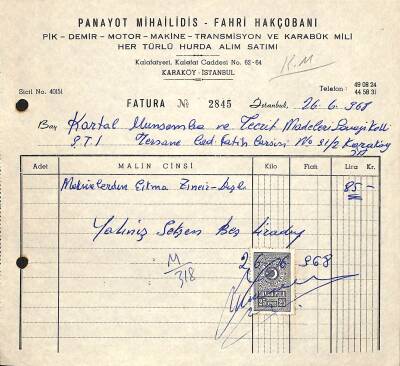 PANAYOT MİHAİLİDİS - FAHRİ HAKÇOBANI
PİK - DEMİR - MOTOR - MAKİNE - TRANSMİSYON VE KARABÜK MİLİ
HER TÜRLÜ HURDA ALIM SATIMI
Kalafatyeri, Kalafat Caddesi No. 62-64
KARAKÖY - İSTANBUL
K.M
Sicil No. 40151
Telefon: 49 08 24
44 58 31
FATURA № 2845 İstanbul, 26.6.968
Bay Kartal Muşamba ve Tecrit Maddeleri Sanayi Koll
Ş.T.İ Tersane Cad. Fatih Çarşısı No 31/2 Karaköy
Adet MALIN CİNSİ Kilo Fiatı Lira Kr.
Makinelerden Çıkma Zincir-Dişli 85 -
Yalnız Seksen Beş Liradır
M/318
26 6 968